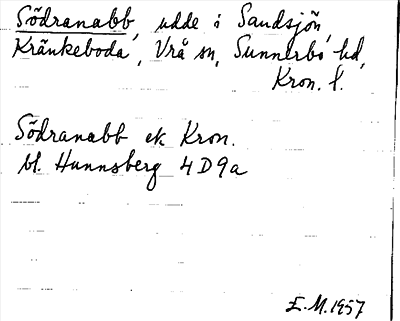 Södranabb, udde i Sandsjön,
Kränkeboda, Vrå sn, Sunnerbo hd,
Kron. l.
Södranabb ek Kron.
bl. Hunnsberg 4D9a
E.M. 1957